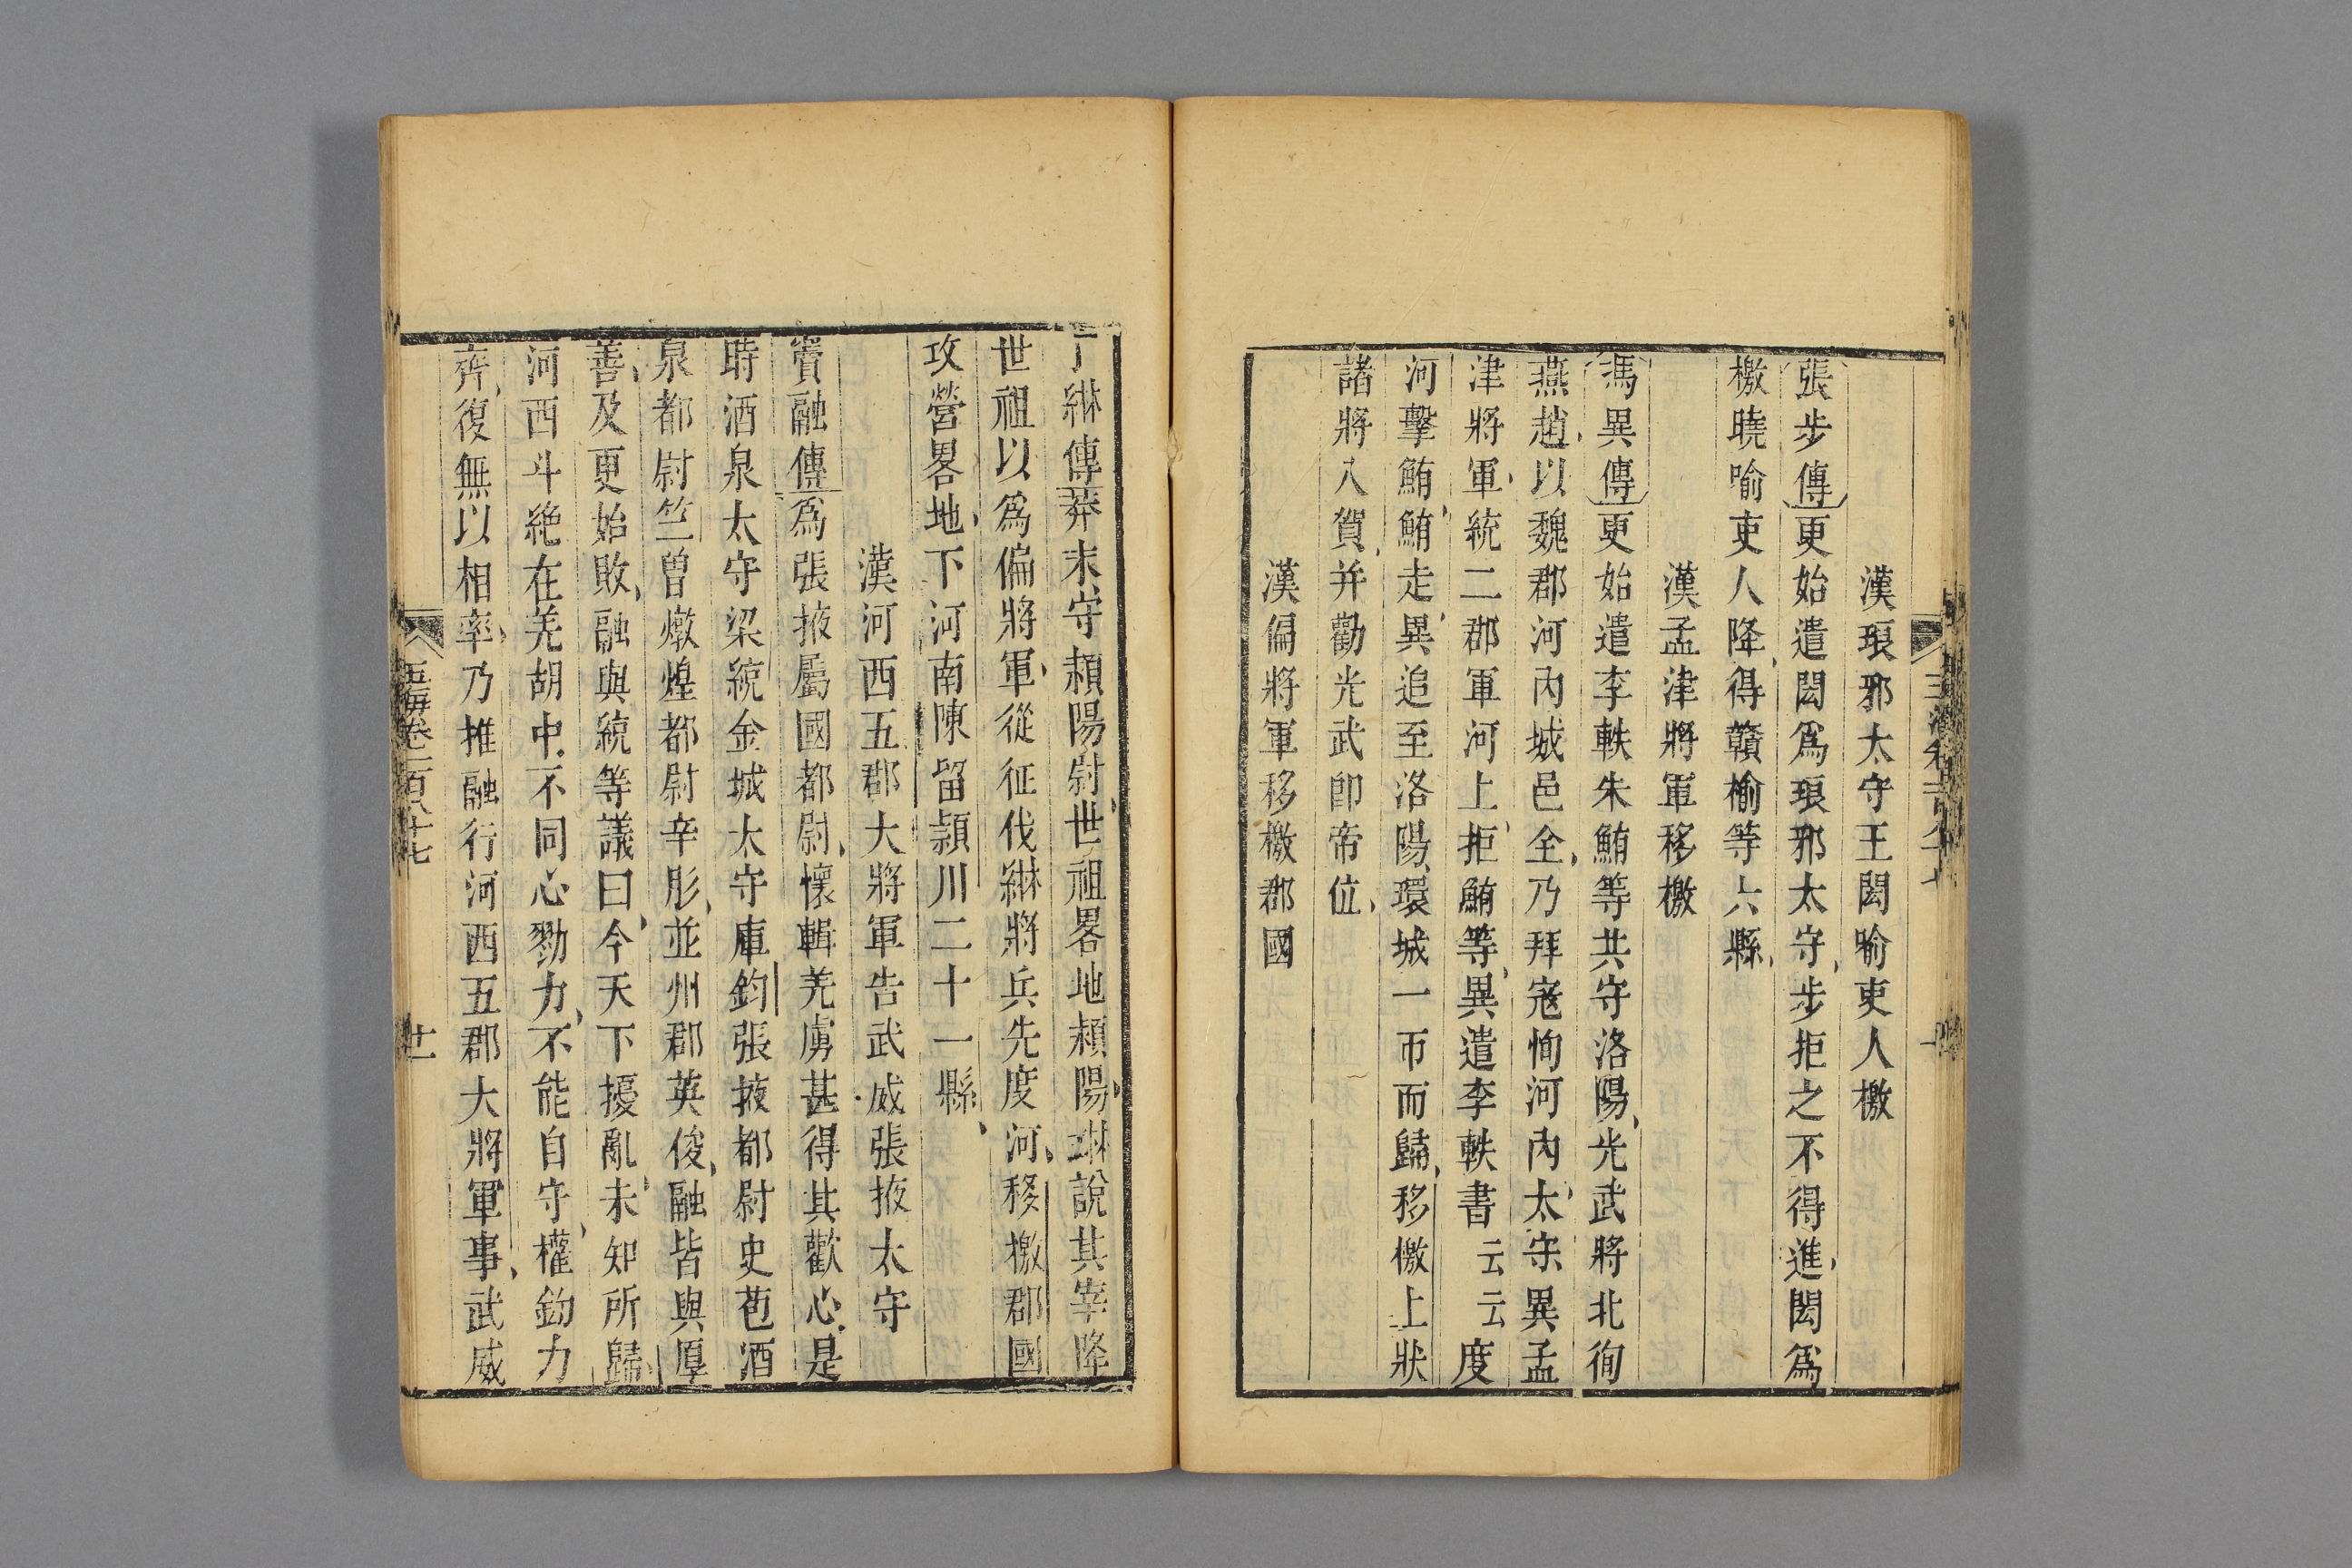 漢琅邪太守王閎喻吏人檄
張步傳更始遣閎爲琅邪太守步拒之不得進閎爲
檄曉喻吏人降得贛榆等六縣
漢孟津將軍移檄
馮異傳更始遣李軼朱鮪等共守洛陽光武將北徇
燕趙以魏郡河內城邑全乃拜寇恂河內太守異孟
津將軍統二郡軍河上拒鮪等異遣李軼書云云度
河擊鮪鮪走異追至洛陽環城一帀而歸移檄上狀
諸將入賀并勸光武卽帝位
漢偏將軍移檄郡國
綝傳莽末守潁陽尉世祖畧地潁陽綝說其宰降
世祖以爲偏將軍從征伐綝將兵先度河移檄郡國
攻營畧地下河南陳留潁川二十一縣
漢河西五郡大將軍告武威張掖太守
竇融傳爲張掖屬國都尉懷輯羌虜甚得其歡心是
時酒泉太守梁統金城太守庫鈞張掖都尉史苞酒
泉都尉竺曾燉煌都尉辛肜並州郡英俊融皆與厚
善及更始敗融與統等議曰今天下擾亂未知所歸
河西斗絶在羌胡中不同心勠力不能自守權鈞力
齊復無以相率乃推融行河西五郡大將軍事武威
玉海卷一百八十七
廿一